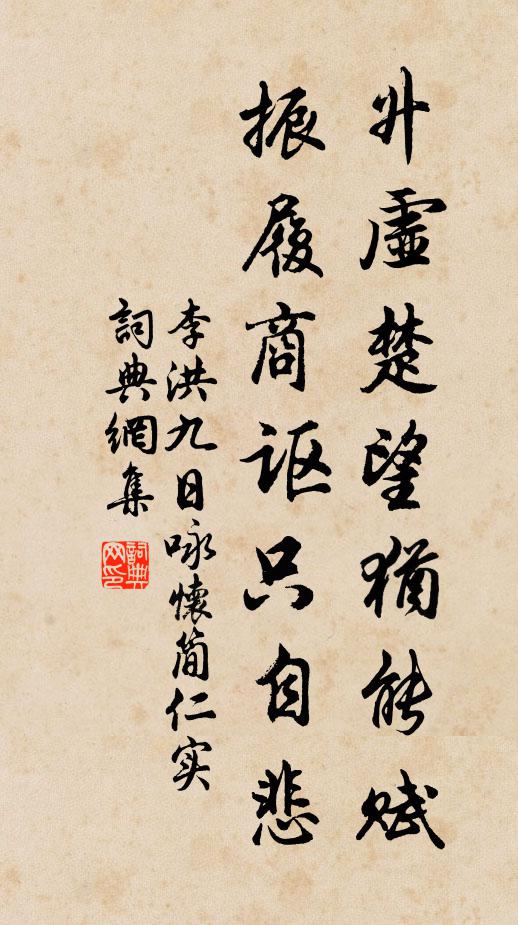 升虛楚望猶能賦
振履商讴只自悲
李洪九日咏懷簡仁实
詞典網集
詞典网印